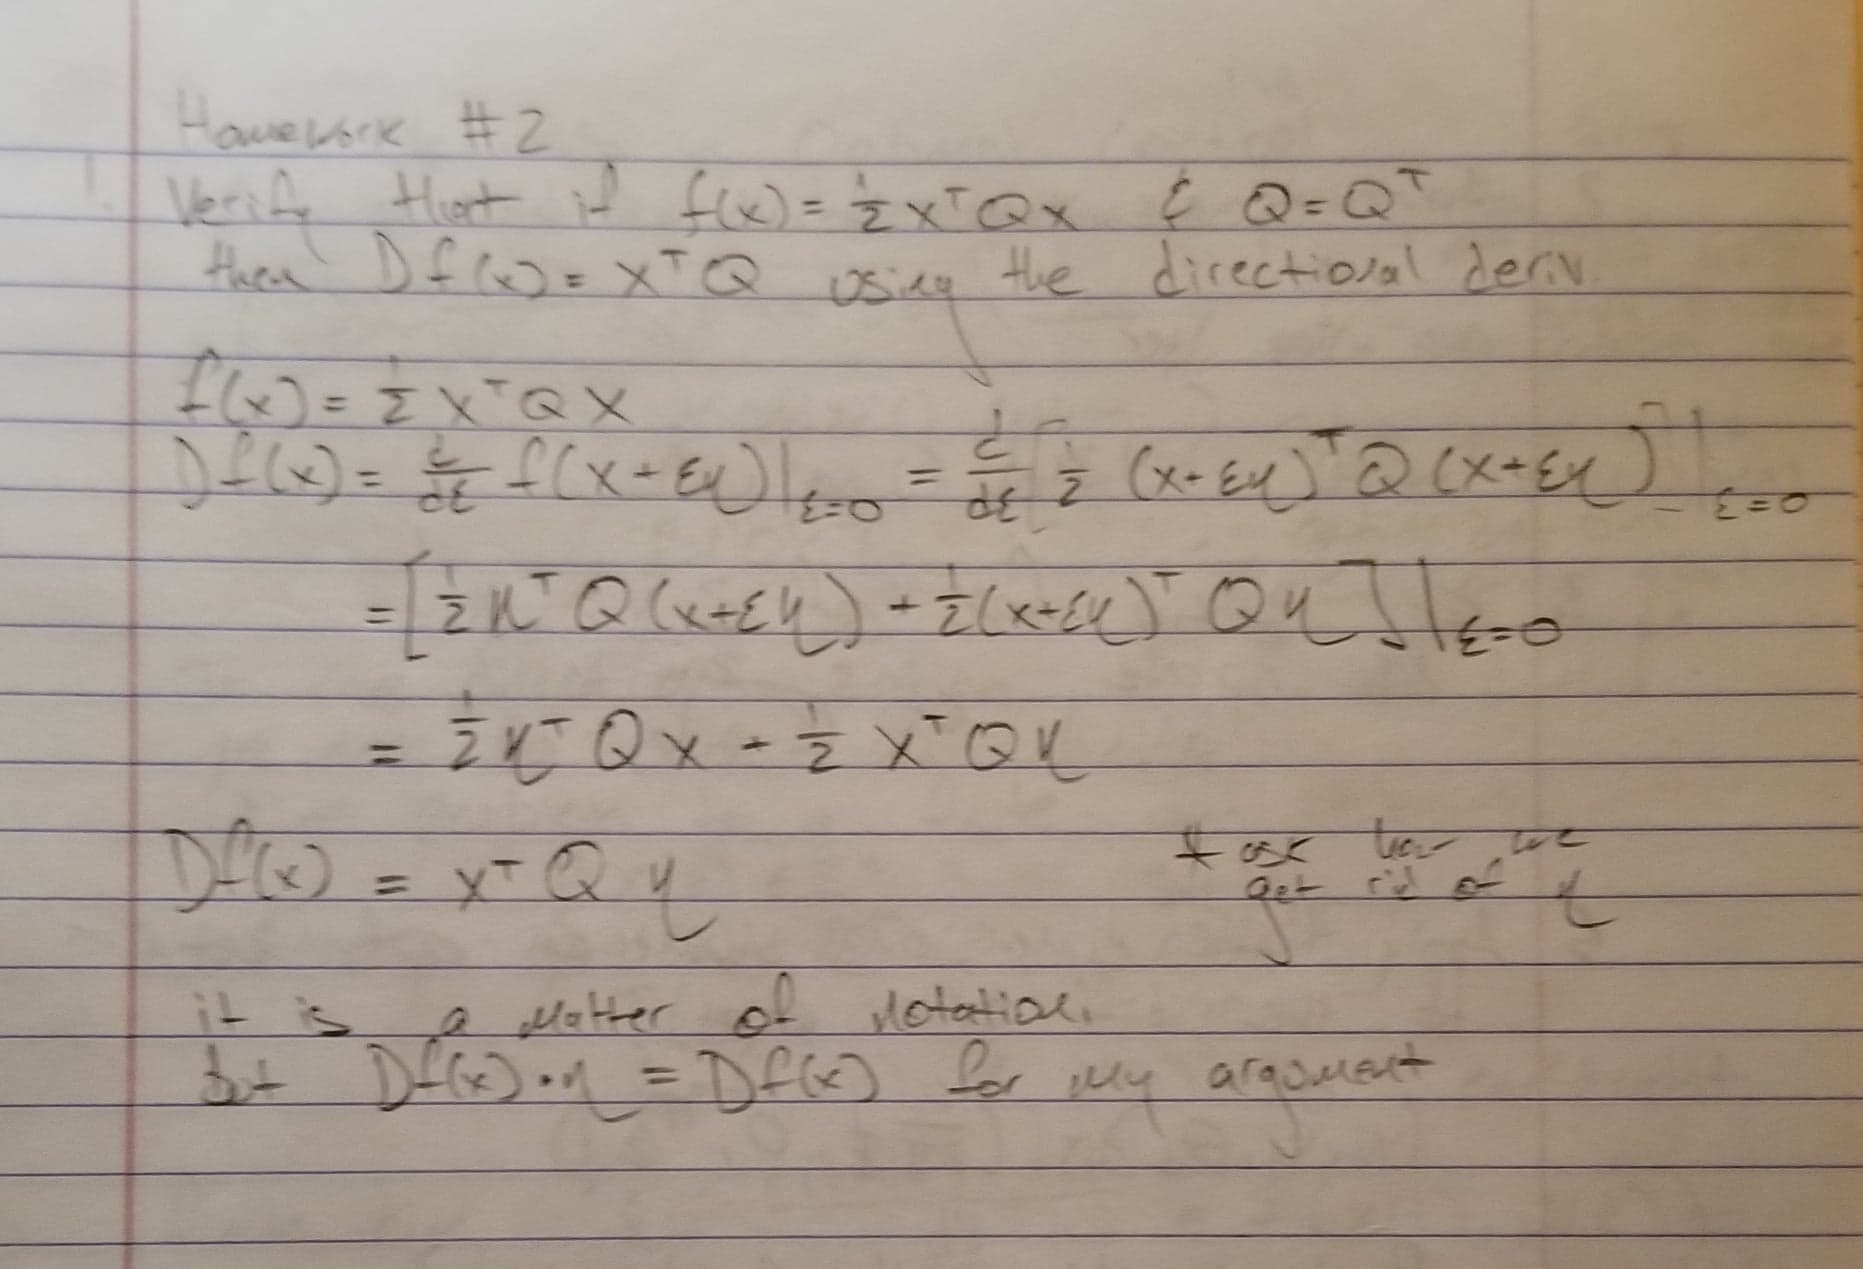 Homework #2
1. Verify that if f(x) = ½ xᵀQx & Q = Qᵀ
then Df(x) = xᵀQ using the directional deriv.
f(x) = ½ xᵀQx
Df(x) = d/dε f(x+εη)|ε=0 = d/dε [½ (x+εη)ᵀQ(x+εη)]|ε=0
= [½ ηᵀQ(x+εη) + ½(x+εη)ᵀQη]|ε=0
= ½ ηᵀQx + ½ xᵀQη
Df(x) = xᵀQη
* ask how we
get rid of η
it is a matter of notation.
but Df(x)•η = Df(x) for my argument